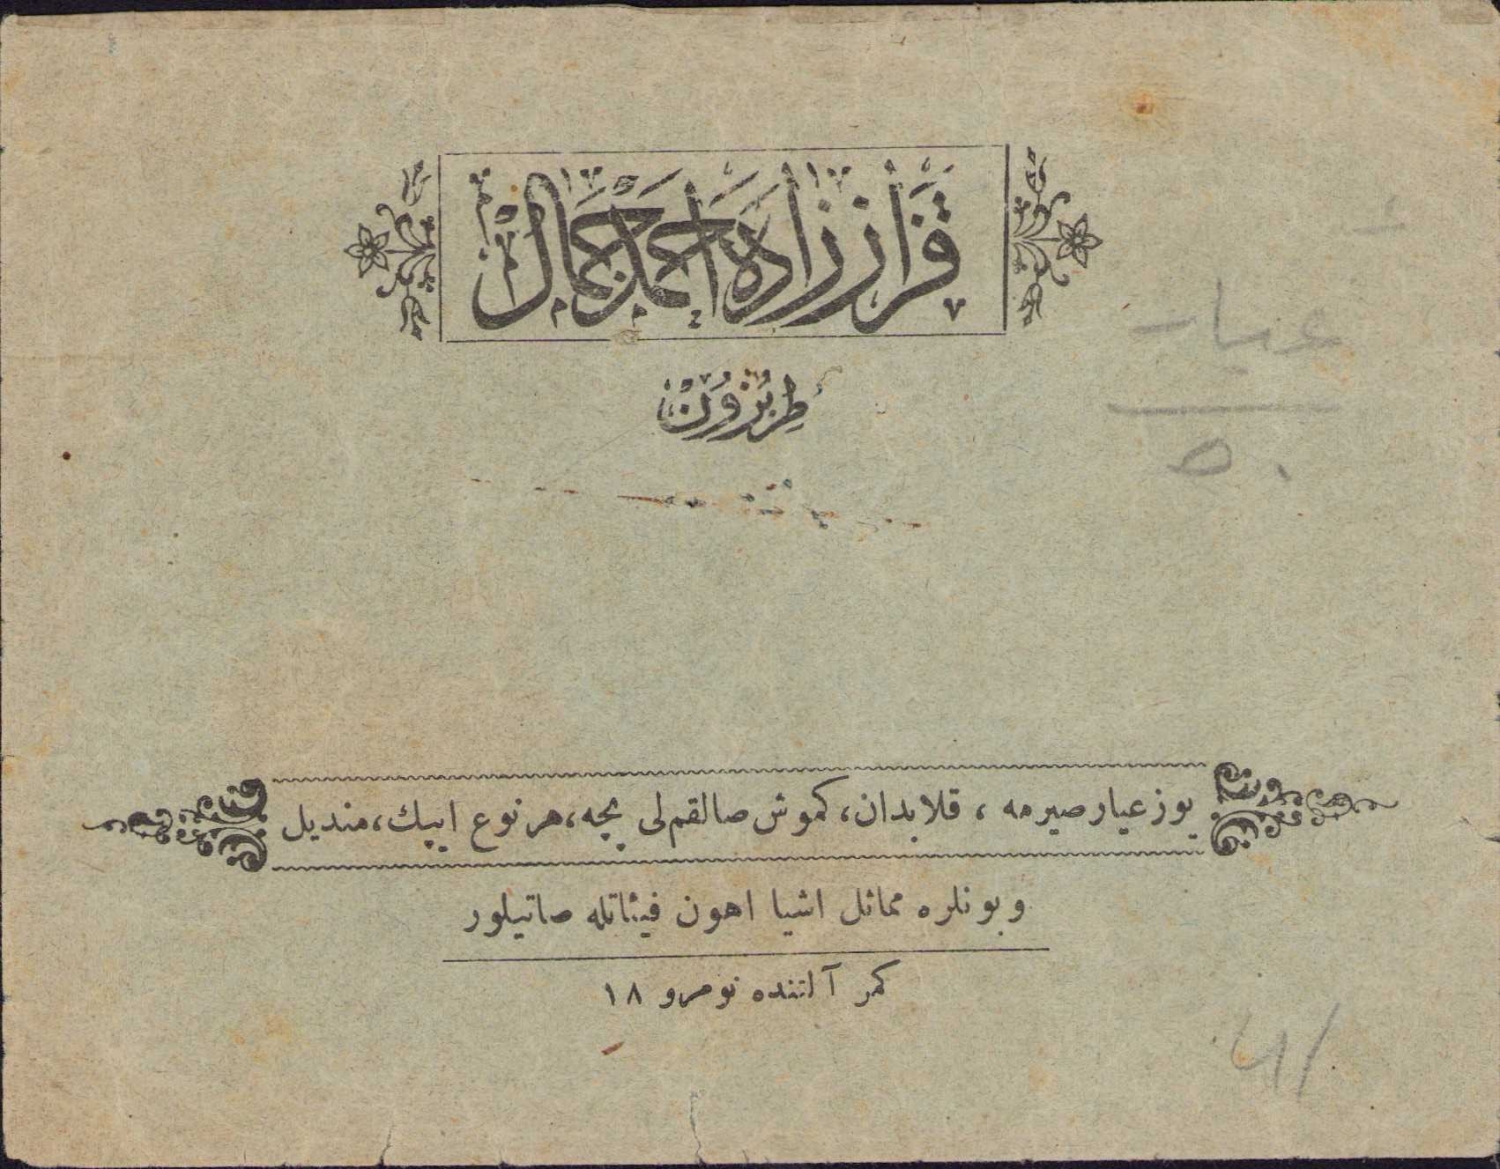 قزاززاده احمد جمال
طربزون
عيار
٥٠
يوز عيار صيرمه ، قلابدان، كموش صالقم لى پچه، هر نوع ايپك، منديل
و بو نلره مماثل اشيا اهون فيئاتله صاتيلور
كمر آلتنده نومرو ١٨